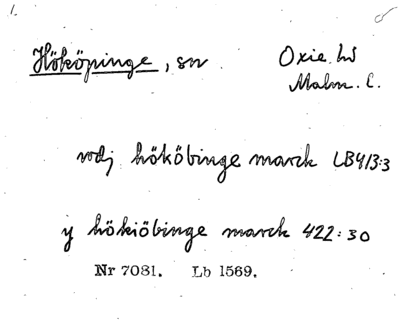 1.
Hököpinge, sn Oxie hd
Malm. l.
vdj hököbinge marck LB413:3
y hökiöbinge marck 422:30
Nr 7081. Lb 1569.